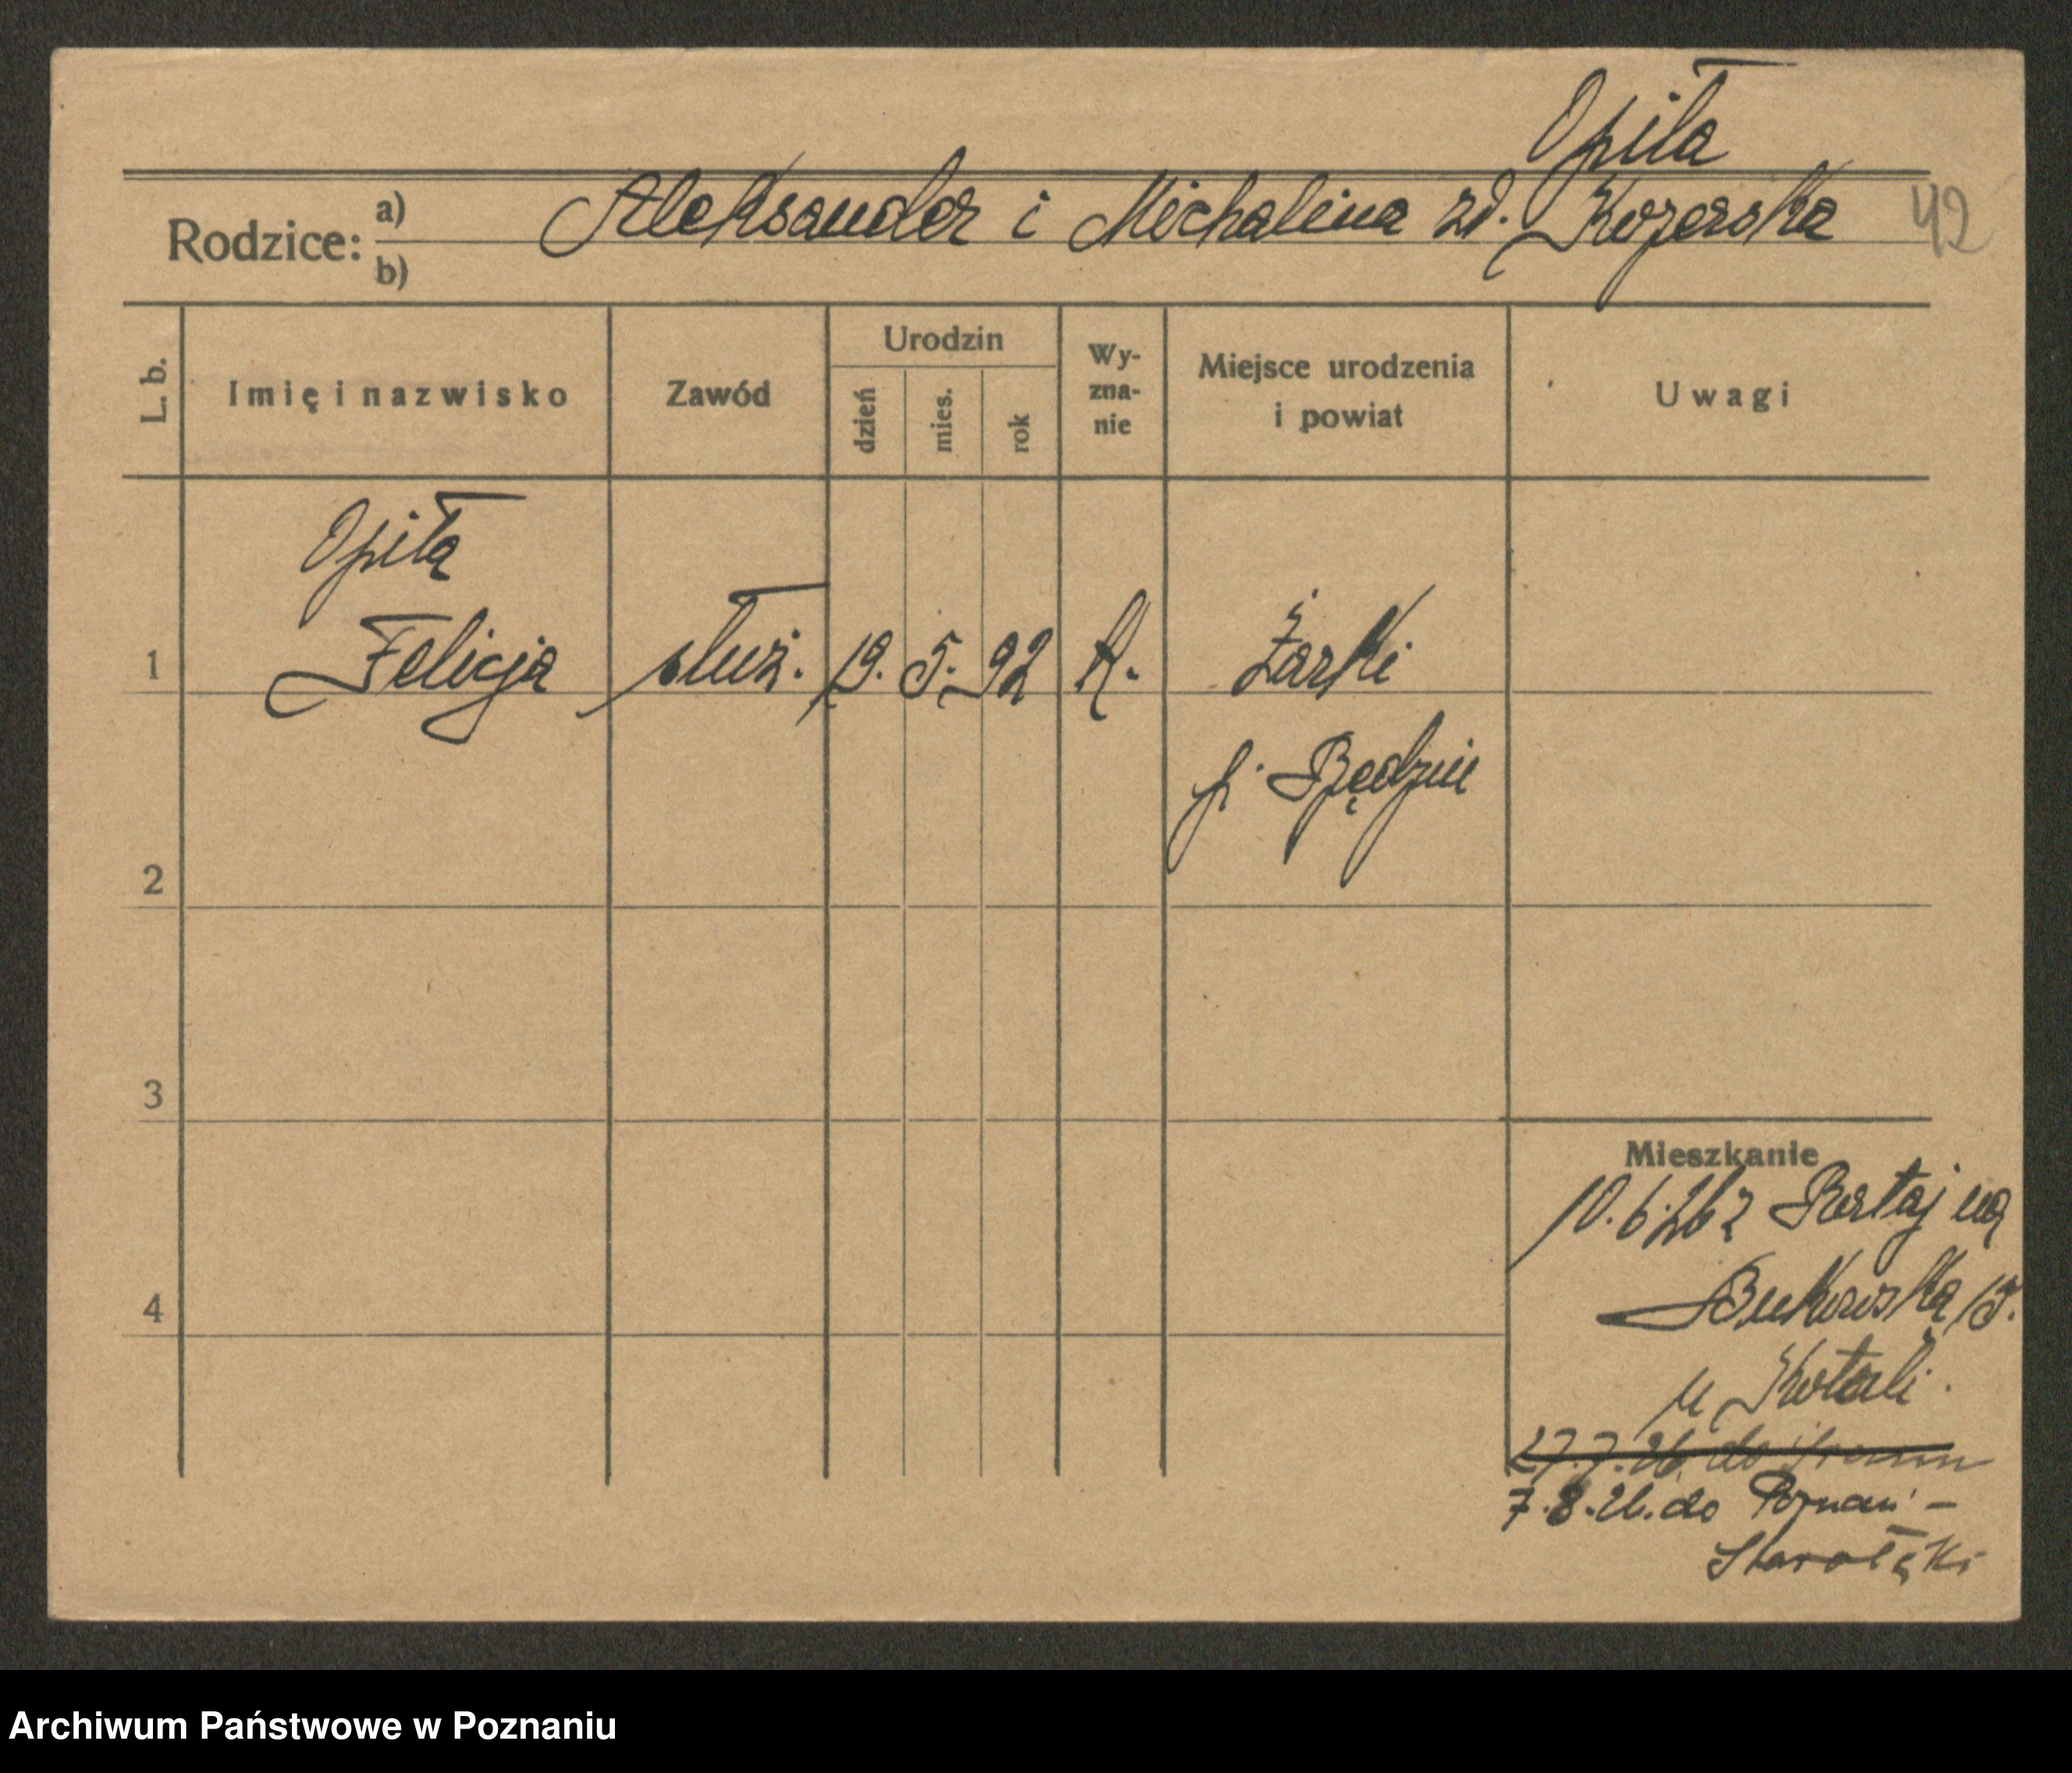 Opiła
Rodzice: a) Aleksander i Michalina zd. Kozerska 42
b)
L. b. Imię i nazwisko Zawód Urodzin dzień mies. rok Wy-zna-nie Miejsce urodzenia i powiat Uwagi
Opiła
1 Felicja służ. 19. 5. 92 K. Żarki
p. Będzin
2
3
Mieszkanie
10.6.26 z Portaj na
4 Bukowską 15.
u Koterli.
27.7.26. do
7.8.26. do Poznań -
Starołęki
Archiwum Państwowe w Poznaniu